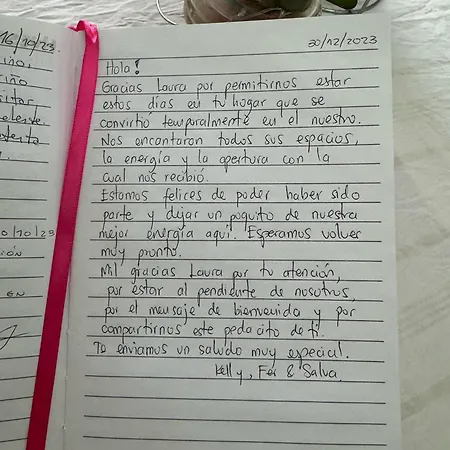 16/10/23
30/12/2023
Hola!
Gracias Laura por permitirnos estar
estos días en tu hogar que se
convirtió temporalmente en el nuestro.
Nos encantaron todos sus espacios,
la energía y la apertura con la
cual nos recibió.
Estamos felices de poder haber sido
parte y dejar un poquito de nuestra
mejor energía aquí. Esperamos volver
muy pronto.
Mil gracias Laura por tu atención,
por estar al pendiente de nosotros,
por el mensaje de bienvenida y por
compartirnos este pedacito de ti.
Te enviamos un saludo muy especial.
Kelly, Fer & Salva.
0/10/23
EN